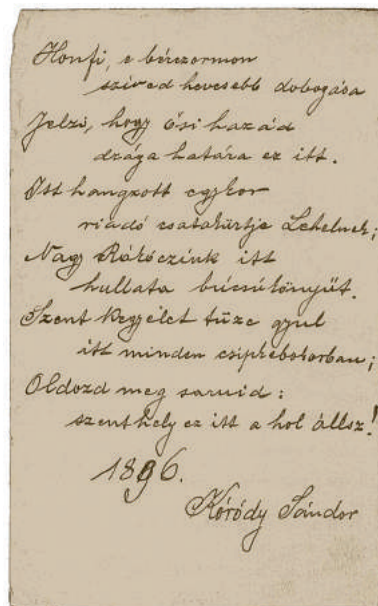 Honfi, e bérczormon
szived hevesebb dobogása
Jelzi, hogy ősi hazád
drága határa ez itt.
Itt hangzott egykor
riadó csatakürtje Lehelnek;
Nagy Rákóczink itt
hullata búcsúkönyűt.
Szent kegyélet tüze gyul
itt minden csipkebokorban;
Oldozd meg saruid:
szent hely ez itt a hol állsz!
1896.
Kóródy Sándor